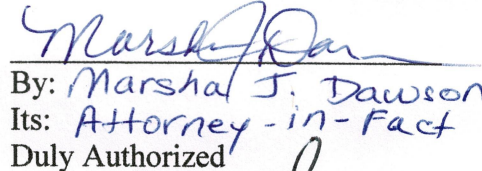 Marsha J. Daw
By: Marsha J. Dawson
Its: Attorney-in-Fact
Duly Authorized